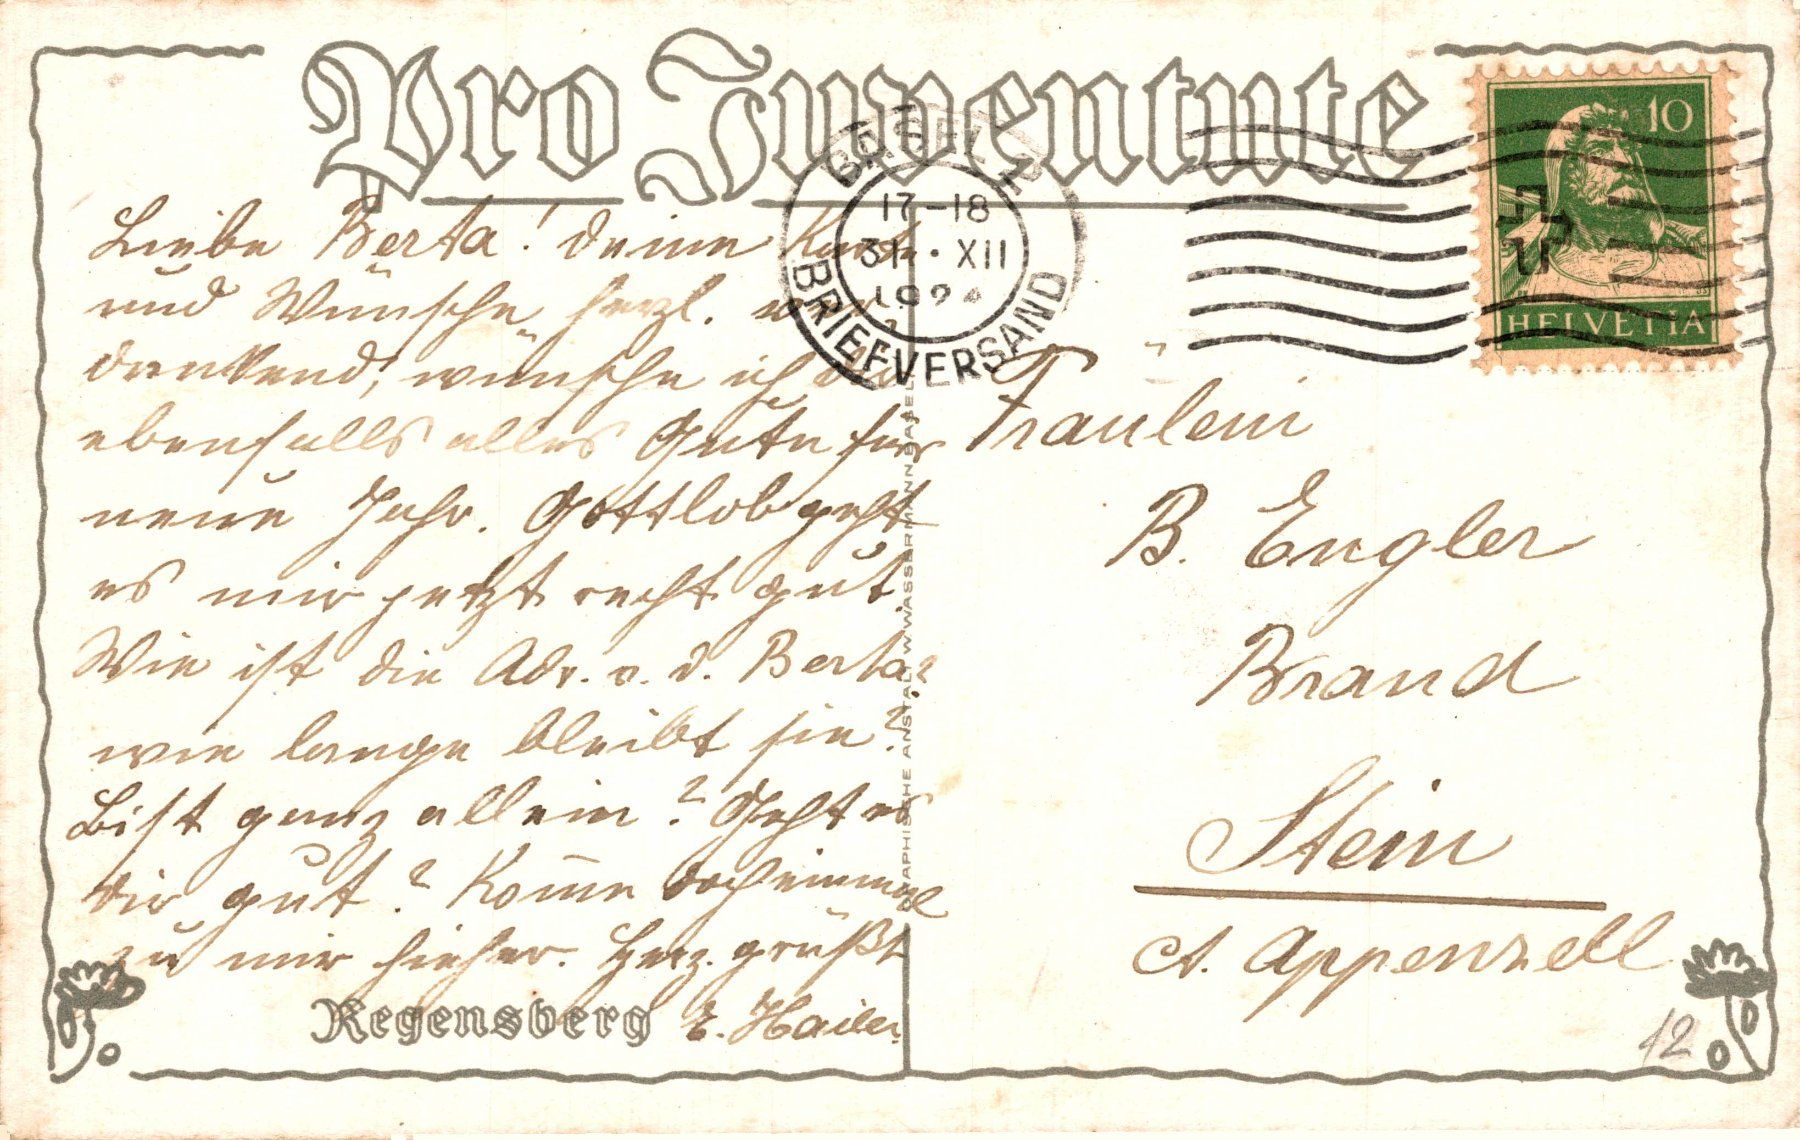 Pro Juventute
BASEL 2
17-18
31. XII
1924
BRIEFVERSAND
10
HELVETIA
Liebe Berta! deine Karte
und Wünsche herzl.
dankend, wünsche ich dir
ebenfalls alles Gute fürs
neue Jahr. Gottlob geht
es mir jetzt recht gut.
Wie ist die Adr. v. d. Berta?
wie lange bleibt sie?
Bist ganz allein? Geht es
dir gut? Kom̅e doch einmal
zu mir hieher. Herz. grüßt
E. Hailer
Regensberg
GRAPHISCHE ANSTALT W. WASSERMANN BASEL
Fräulein
B. Engler
Brand
Stein
Ct. Appenzell
12